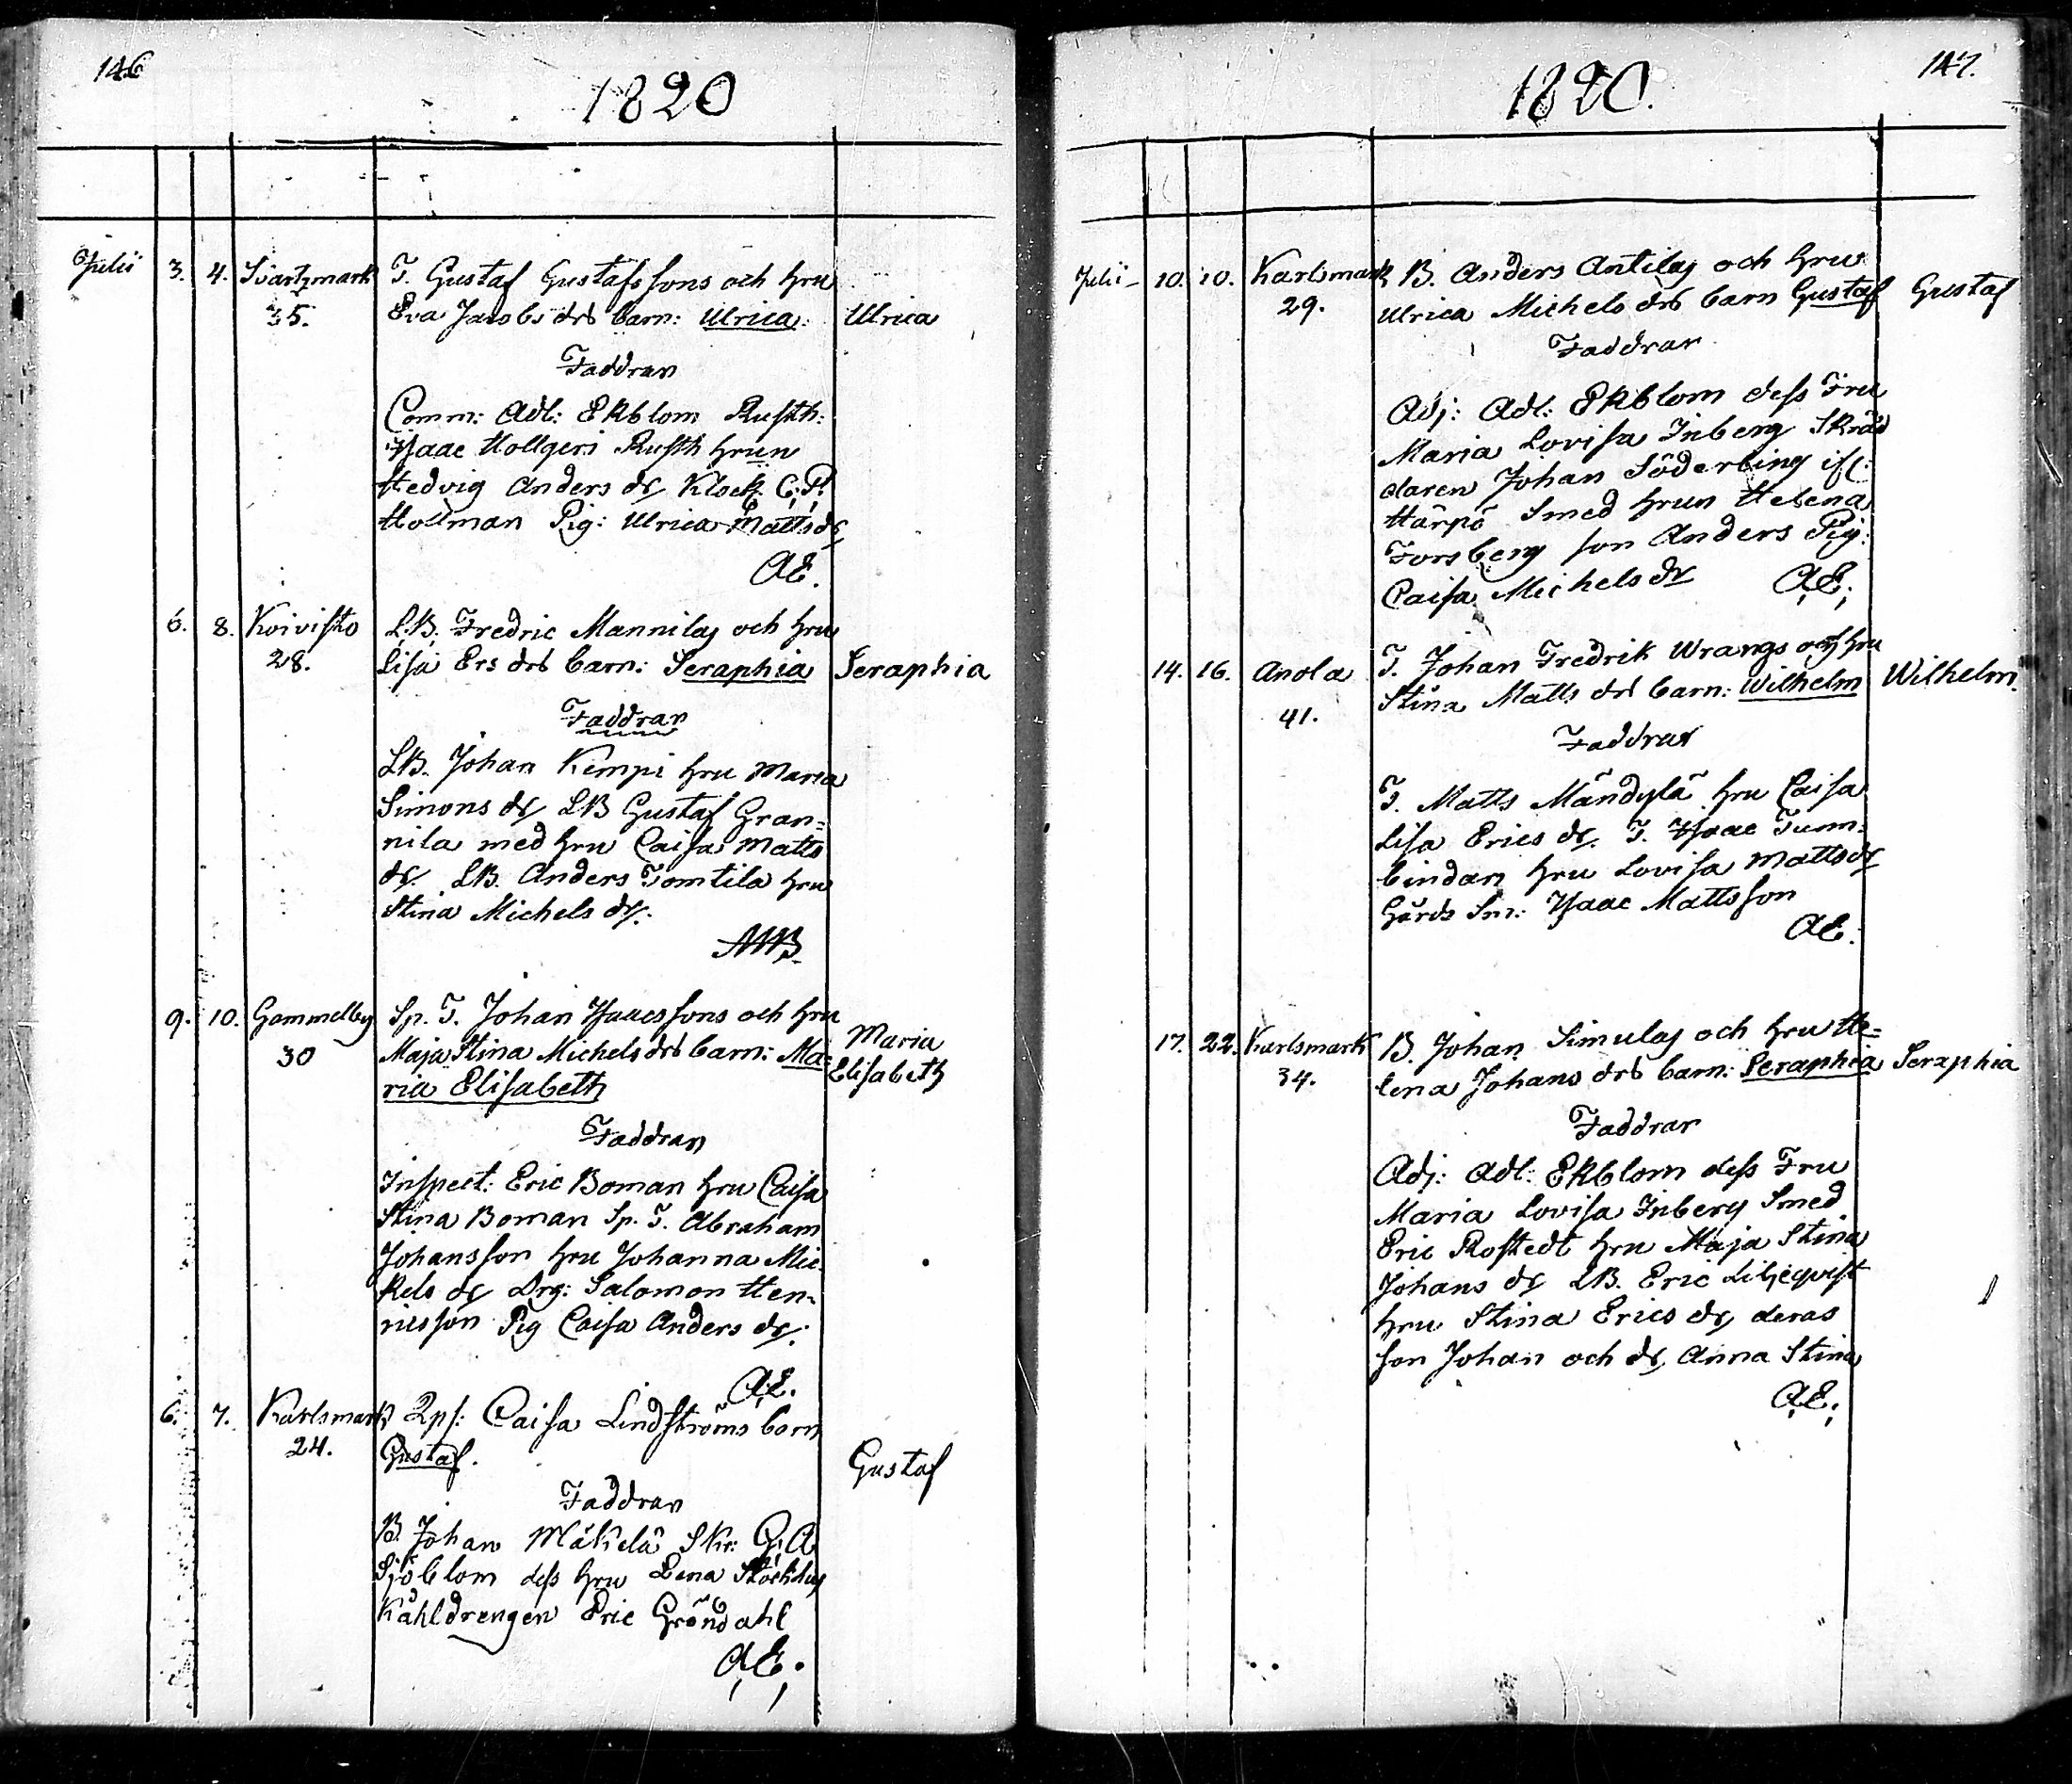 146
1820
Julii 3. 4. Svartsmark T. Gustaf Gustafssons och hru
35. Eva Jacobs drs barn: Ulrica. Ulrica
Faddrar
Comm: Adl: Ekblom Rusth:
Isaac Hollgeri Rusth hrun
Hedvig Anders dr Klock. C. P.
Hollman Pig: Ulrica Matts dr
AE.
6. 8. Koivisto LB. Fredric Mannilas och hru
28. Lisa Ers drs barn: Seraphia Seraphia
Faddrar
LB. Johan Kempi hru Maria
Simons dr LB Gustaf Gran=
nila med hru Caisa Matts
dr. LB. Anders Tomtila hru
Stina Michels dr.
9. 10. Gammelby Sp. T. Johan Isaacssons och hru
30 Maja Stina Michels drs barn: Ma= Maria
ria Elisabeth Elisabeth
Faddrar
Inspect: Eric Boman hru Caisa
Stina Boman Sp. T. Abraham
Johansson hru Johanna Mic
kels dr Drg: Salomon Hen=
ricsson Pig Caisa Anders dr.
AE.
6. 7. Karlsmark Qps: Caisa Lindströms barn
24. Gustaf. Gustaf
Faddrar
B. Johan Mäkelä Skr: G. A
Sjöblom dess hru Lena
Kåhldrengen Eric Gröndahl
AE.
147.
1820.
Julii 10. 10. Karlsmark B. Anders Antilas och hru
29. Ulrica Michels drs barn Gustaf Gustaf
Faddrar
Adj: Adl: Ekblom dess Fru
Maria Lovisa Inberg Skräd
daren Johan Söderling
Härpö Smed hrun Helena
Forsberg son Anders Pig:
Caisa Michels dr AE.
14. 16. Anola T. Johan Fredrik Wrangs och hru
41. Stina Matts drs barn: Wilhelm Wilhelm.
Faddrar
T. Matts Mändylä hru Caisa
Lisa Erics dr. T. Isaac Tunn=
bindar hru Lovisa Matts dr
Gårds Sm: Isaac Mattsson
AE.
17. 22. Karlsmark B. Johan Simulas och hru He=
34. lena Johans drs barn: Seraphia Seraphia
Faddrar
Adj: Adl: Ekblom dess Fru
Maria Lovisa Inberg Smed
Eric Rostedt hru Maja Stina
Johans dr LB. Eric Liljeqvist
hru Stina Erics dr deras
son Johan och dr Anna Stina
AE.